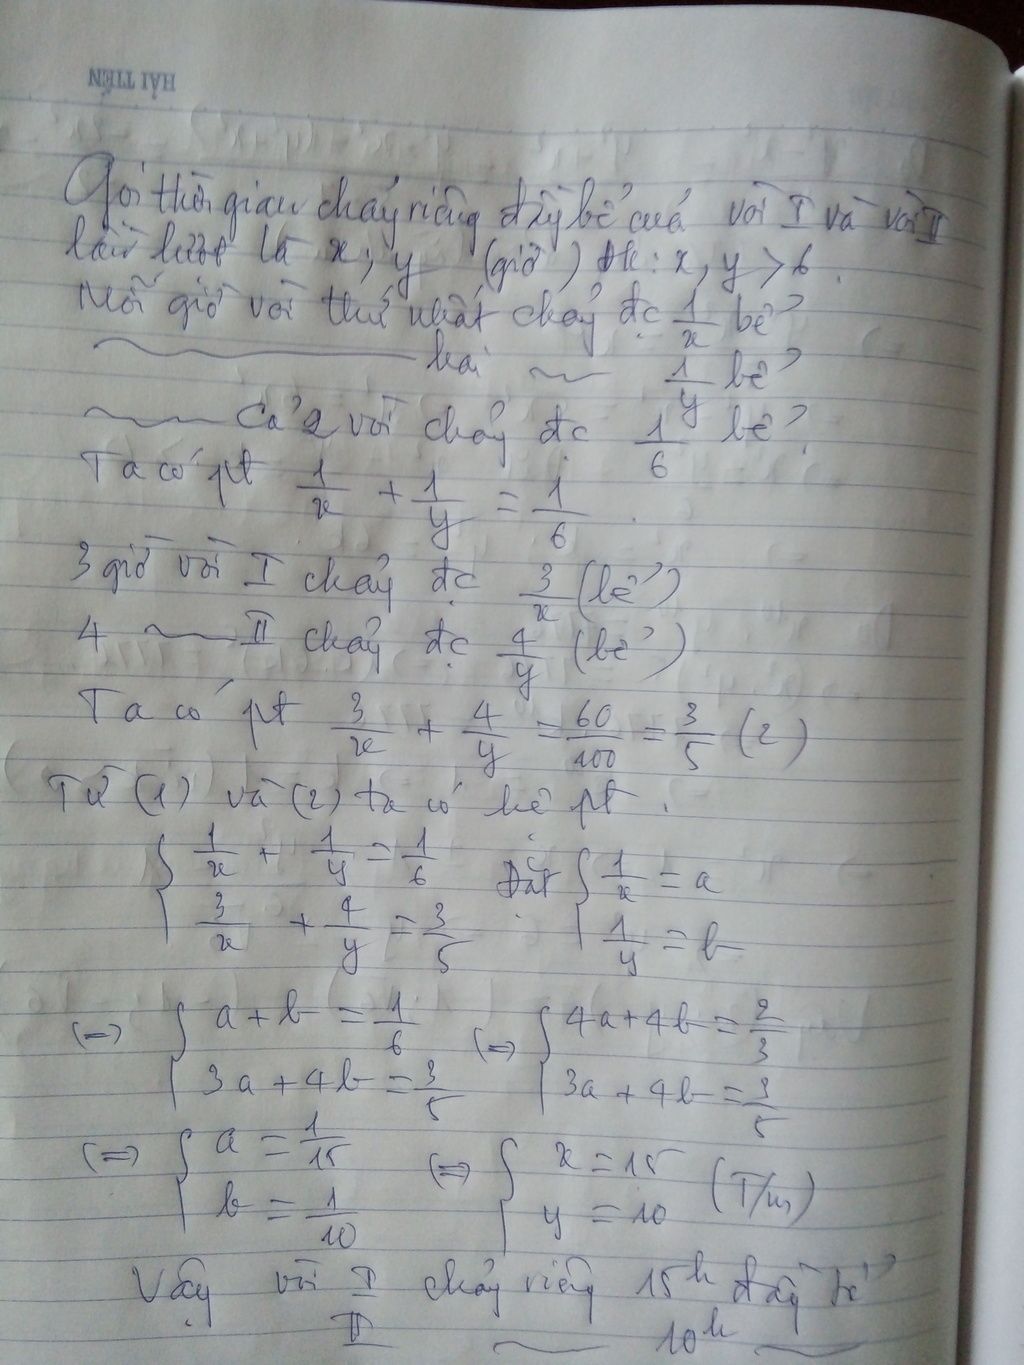 HẢI TIẾN
Gọi thời gian chảy riêng đầy bể của vòi I và vòi II
lần lượt là x; y (giờ) đk: x, y > 6.
Mỗi giờ vòi thứ nhất chảy đc 1/x bể
~ hai ~ 1/y bể
~ Cả 2 vòi chảy đc 1/6 bể.
Ta có pt 1/x + 1/y = 1/6
3 giờ vòi I chảy đc 3/x (bể)
4 ~ II chảy đc 4/y (bể)
Ta có pt 3/x + 4/y = 60/100 = 3/5 (2)
Từ (1) và (2) ta có hệ pt.
{ 1/x + 1/y = 1/6 Đặt { 1/x = a
3/x + 4/y = 3/5 1/y = b
(=) { a + b = 1/6 (=) { 4a + 4b = 2/3
3a + 4b = 3/5 3a + 4b = 3/5
(=) { a = 1/15 (=) { x = 15 (T/m)
b = 1/10 y = 10
Vậy vòi I chảy riêng 15h đầy bể
II ~ 10h ~